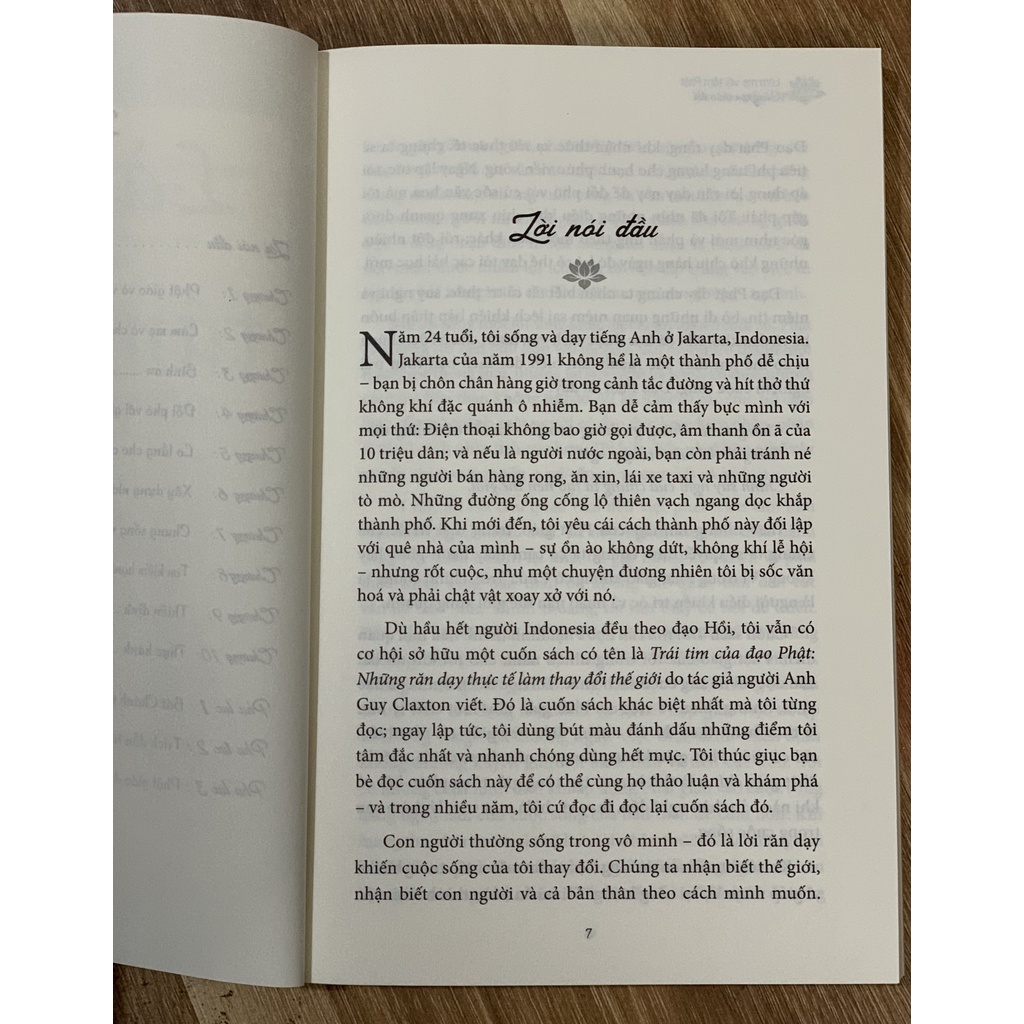 Lời nói đầu
Năm 24 tuổi, tôi sống và dạy tiếng Anh ở Jakarta, Indonesia.
Jakarta của năm 1991 không hề là một thành phố dễ chịu
– bạn bị chôn chân hàng giờ trong cảnh tắc đường và hít thở thứ
không khí đặc quánh ô nhiễm. Bạn dễ cảm thấy bực mình với
mọi thứ: Điện thoại không bao giờ gọi được, âm thanh ồn ã của
10 triệu dân; và nếu là người nước ngoài, bạn còn phải tránh né
những người bán hàng rong, ăn xin, lái xe taxi và những người
tò mò. Những đường ống cống lộ thiên vạch ngang dọc khắp
thành phố. Khi mới đến, tôi yêu cái cách thành phố này đối lập
với quê nhà của mình – sự ồn ào không dứt, không khí lễ hội
– nhưng rốt cuộc, như một chuyện đương nhiên tôi bị sốc văn
hoá và phải chật vật xoay xở với nó.
Dù hầu hết người Indonesia đều theo đạo Hồi, tôi vẫn có
cơ hội sở hữu một cuốn sách có tên là Trái tim của đạo Phật:
Những răn dạy thực tế làm thay đổi thế giới do tác giả người Anh
Guy Claxton viết. Đó là cuốn sách khác biệt nhất mà tôi từng
đọc; ngay lập tức, tôi dùng bút màu đánh dấu những điểm tôi
tâm đắc nhất và nhanh chóng dùng hết mực. Tôi thúc giục bạn
bè đọc cuốn sách này để có thể cùng họ thảo luận và khám phá
– và trong nhiều năm, tôi cứ đọc đi đọc lại cuốn sách đó.
Con người thường sống trong vô minh – đó là lời răn dạy
khiến cuộc sống của tôi thay đổi. Chúng ta nhận biết thế giới,
nhận biết con người và cả bản thân theo cách mình muốn.
7